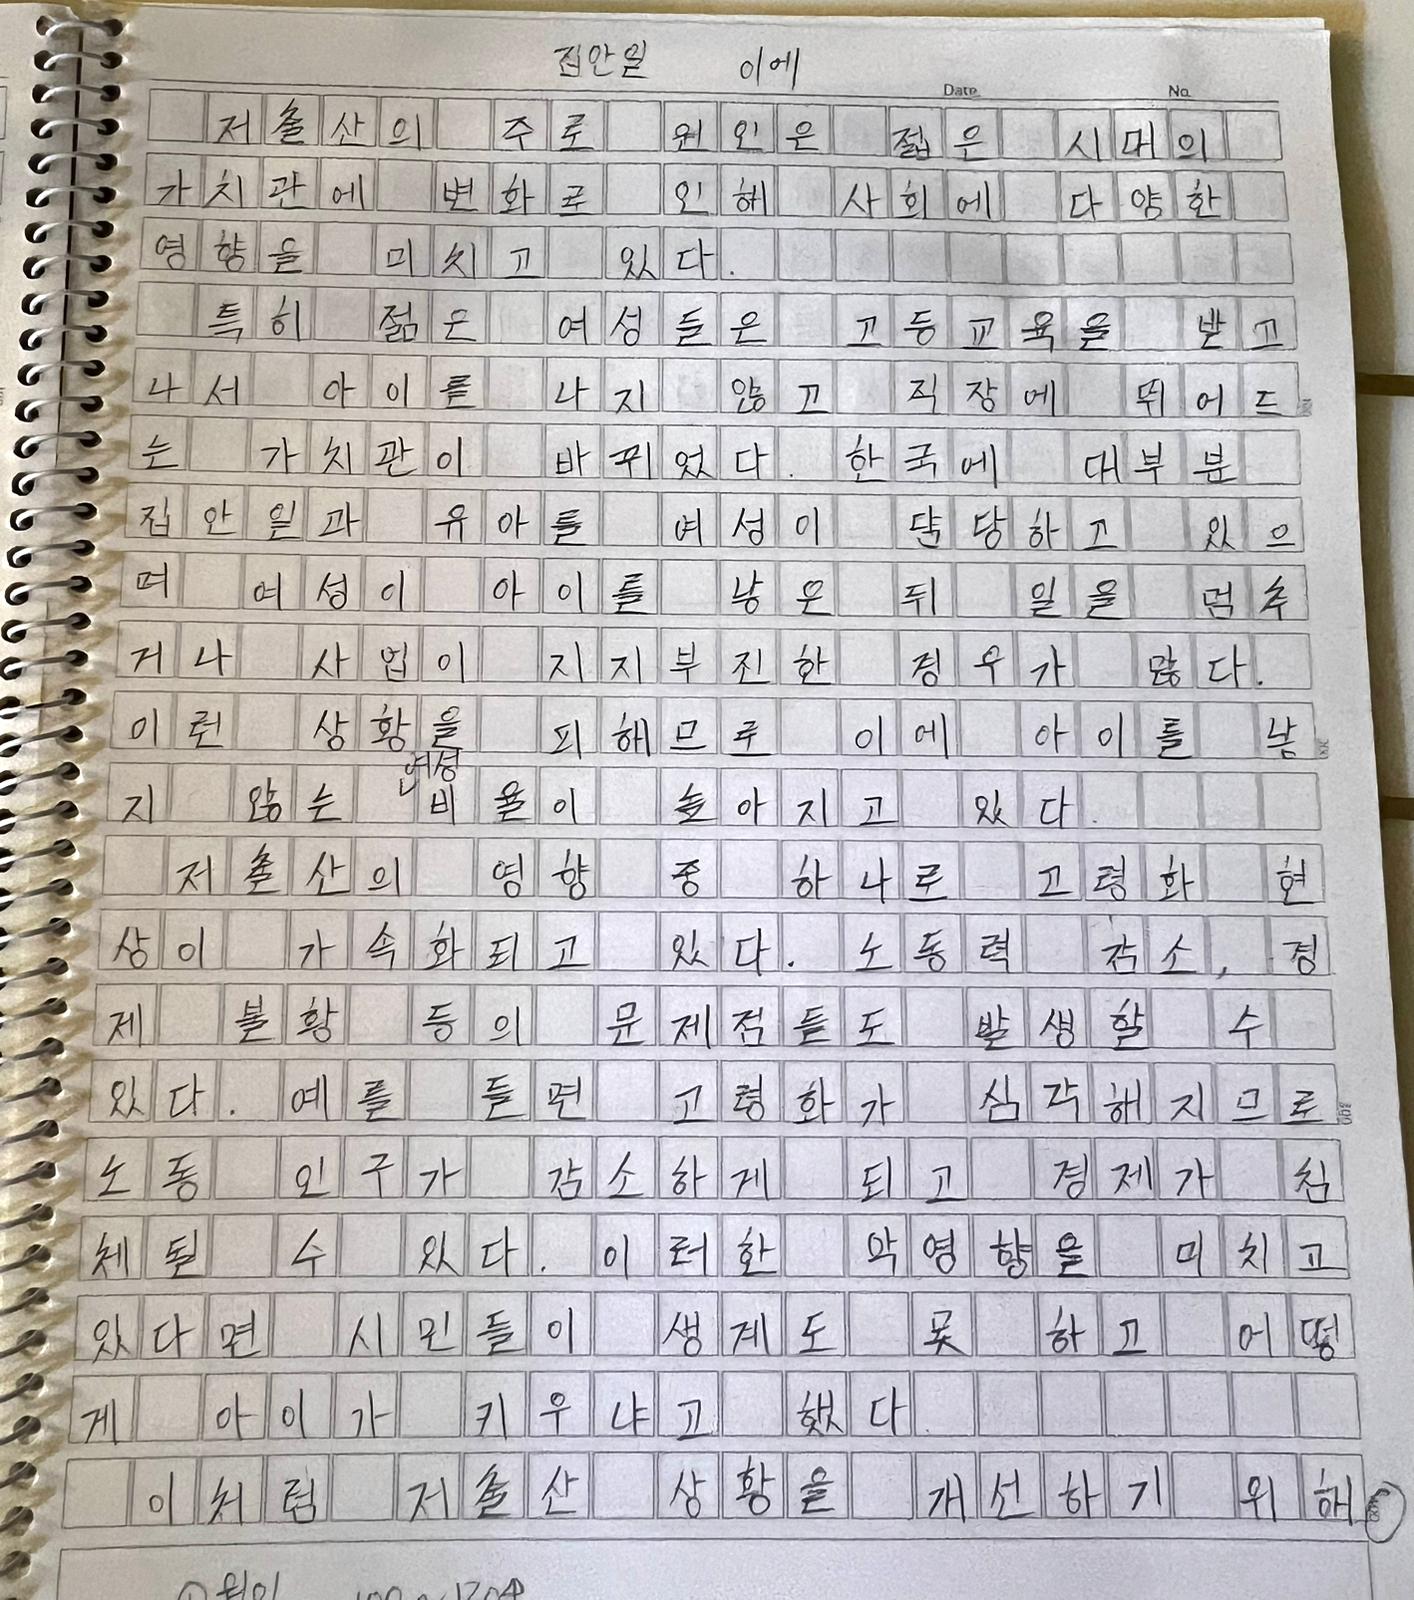 집안일 이에
Date No.
저출산의 주로 원인은 젋은 시대의
가치관에 변화로 인해 사회에 다양한
영향을 미치고 있다.
특히 젊은 여성들은 고등교육을 받고
나서 아이를 나지 않고 직장에 뛰어드
는 가치관이 바뀌었다. 한국에 대부분
집안일과 유아를 여성이 담당하고 있으
며 여성이 아이를 낳은 뒤 일을 멈추
거나 사업이 지지부진한 경우가 많다.
이런 상황을 피해므로 이에 아이를 낳
여성
지 않는 비율이 높아지고 있다.
저출산의 영향 중 하나로 고령화 현
상이 가속화되고 있다. 노동력 감소, 경
제 불황 등의 문제점들도 발생할 수
있다. 예를 들면 고령화가 심각해지므로
노동 인구가 감소하게 되고 경제가 침
체될 수 있다. 이러한 악영향을 미치고
있다면 시민들이 생계도 못 하고 어떻
게 아이가 키우냐고 했다.
이처럼 저출산 상황을 개선하기 위해
① 원인